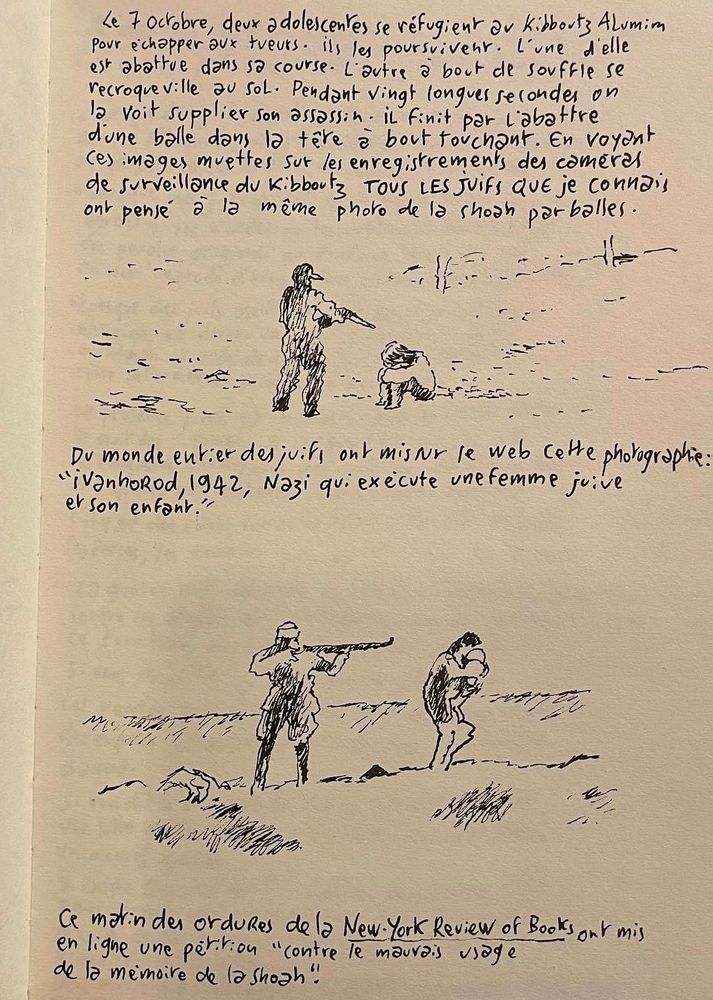 Le 7 octobre, deux adolescentes se réfugient au Kibboutz Alumim
pour échapper aux tueurs. ils les poursuivent. L'une d'elle
est abattue dans sa course. L'autre à bout de souffle se
recroqueville au sol. Pendant vingt longues secondes on
la voit supplier son assassin. il finit par l'abattre
d'une balle dans la tête à bout touchant. En voyant
ces images muettes sur les enregistrements des caméras
de surveillance du Kibboutz TOUS LES JUIFS QUE je connais
ont pensé à la même photo de la shoah par balles.
Du monde entier des juifs ont mis sur le web cette photographie:
"ivanhorod, 1942, Nazi qui exécute une femme juive
et son enfant."
Ce matin des ordures de la New-York Review of Books ont mis
en ligne une pétition "contre le mauvais usage
de la mémoire de la shoah".